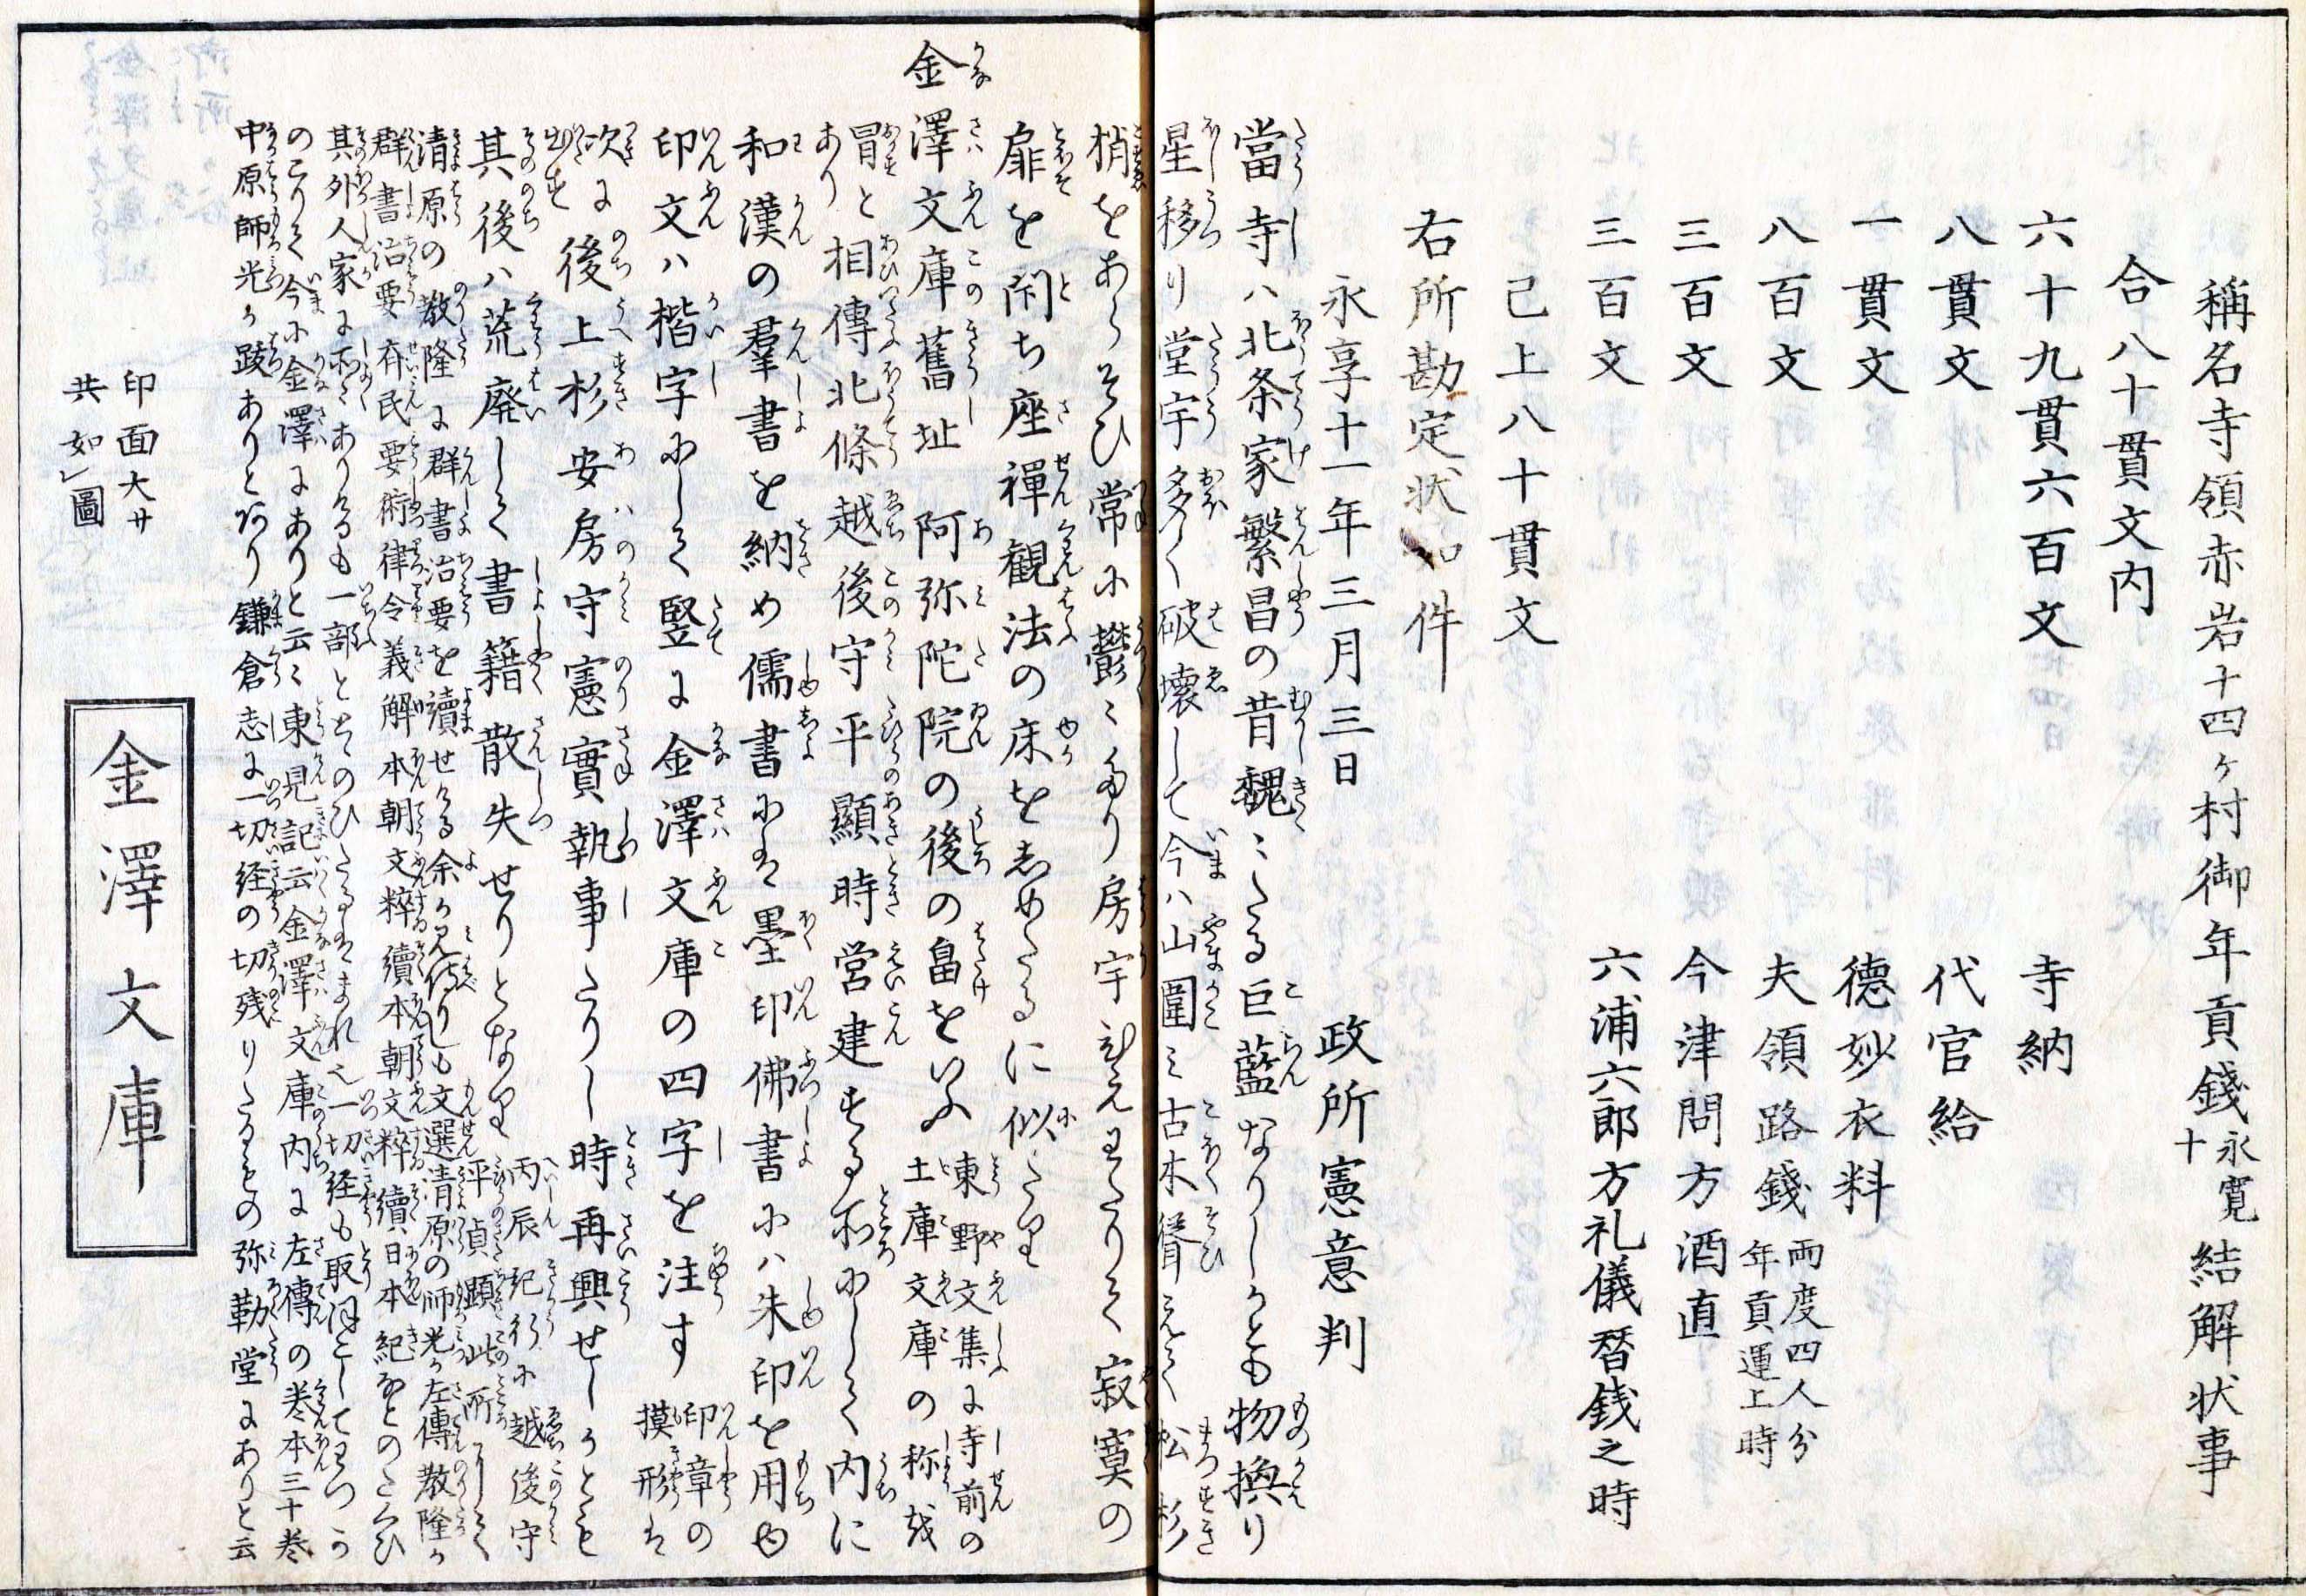 稱名寺領赤岩十四ヶ村御年貢錢永寛十結解状事
合八十貫文内
六十九貫六百文 寺納
八貫文 代官給
一貫文 德妙衣料
八百文 夫領路錢 両度四人分年貢運上時
三百文 今津問方酒直
三百文 六浦六郎方礼儀替銭之時
已上八十貫文
右所勘定状如件
永享十一年三月三日 政所憲意判
當寺ハ北条家繁昌の昔魏〻たる巨藍なりしかとも物換り
星移り堂宇多く破壊して今ハ山圍ミ古木聳えて松杉
梢をあらそひ常に鬱〻たり房宇むえわたりて寂寞の
扉を閇ち座禪観法の床を占めたるに似たり
金澤文庫舊址 阿弥陀院の後の畠をいふ 東野文集に寺前の土庫文庫の称或
冒と相傳北條越後守平顯時営建する所にして内に
あり
和漢の羣書を納め儒書にハ墨印佛書にハ朱印を用ゆ
印文ハ楷字にして竪に金澤文庫の四字を注す 印章の摸形ハ
次に出す 後上杉安房守憲實執事たりし時再興せしかとも
其後ハ荒廃して書籍散失せりとなり 丙辰紀行に越後守平貞顕此所にして
清原の教隆に群書治要を讀せける余か見侍りしも文選清原の師光か左傳教隆か
群書治要斉民要術律令義解本朝文粹續本朝文粹續日本紀なとのたくひ
其外人家に所〻ありけるも一部とゝのひたるハまれ也一切経も取ほこしてわつか
のこりて今に金澤にありと云〻東見記云金澤文庫内に左傳の巻本三十巻
中原師光か跋ありとあり鎌倉志に一切経の切残りたるもの弥勒堂にありと云
印面大サ
共如」圖
金澤文庫